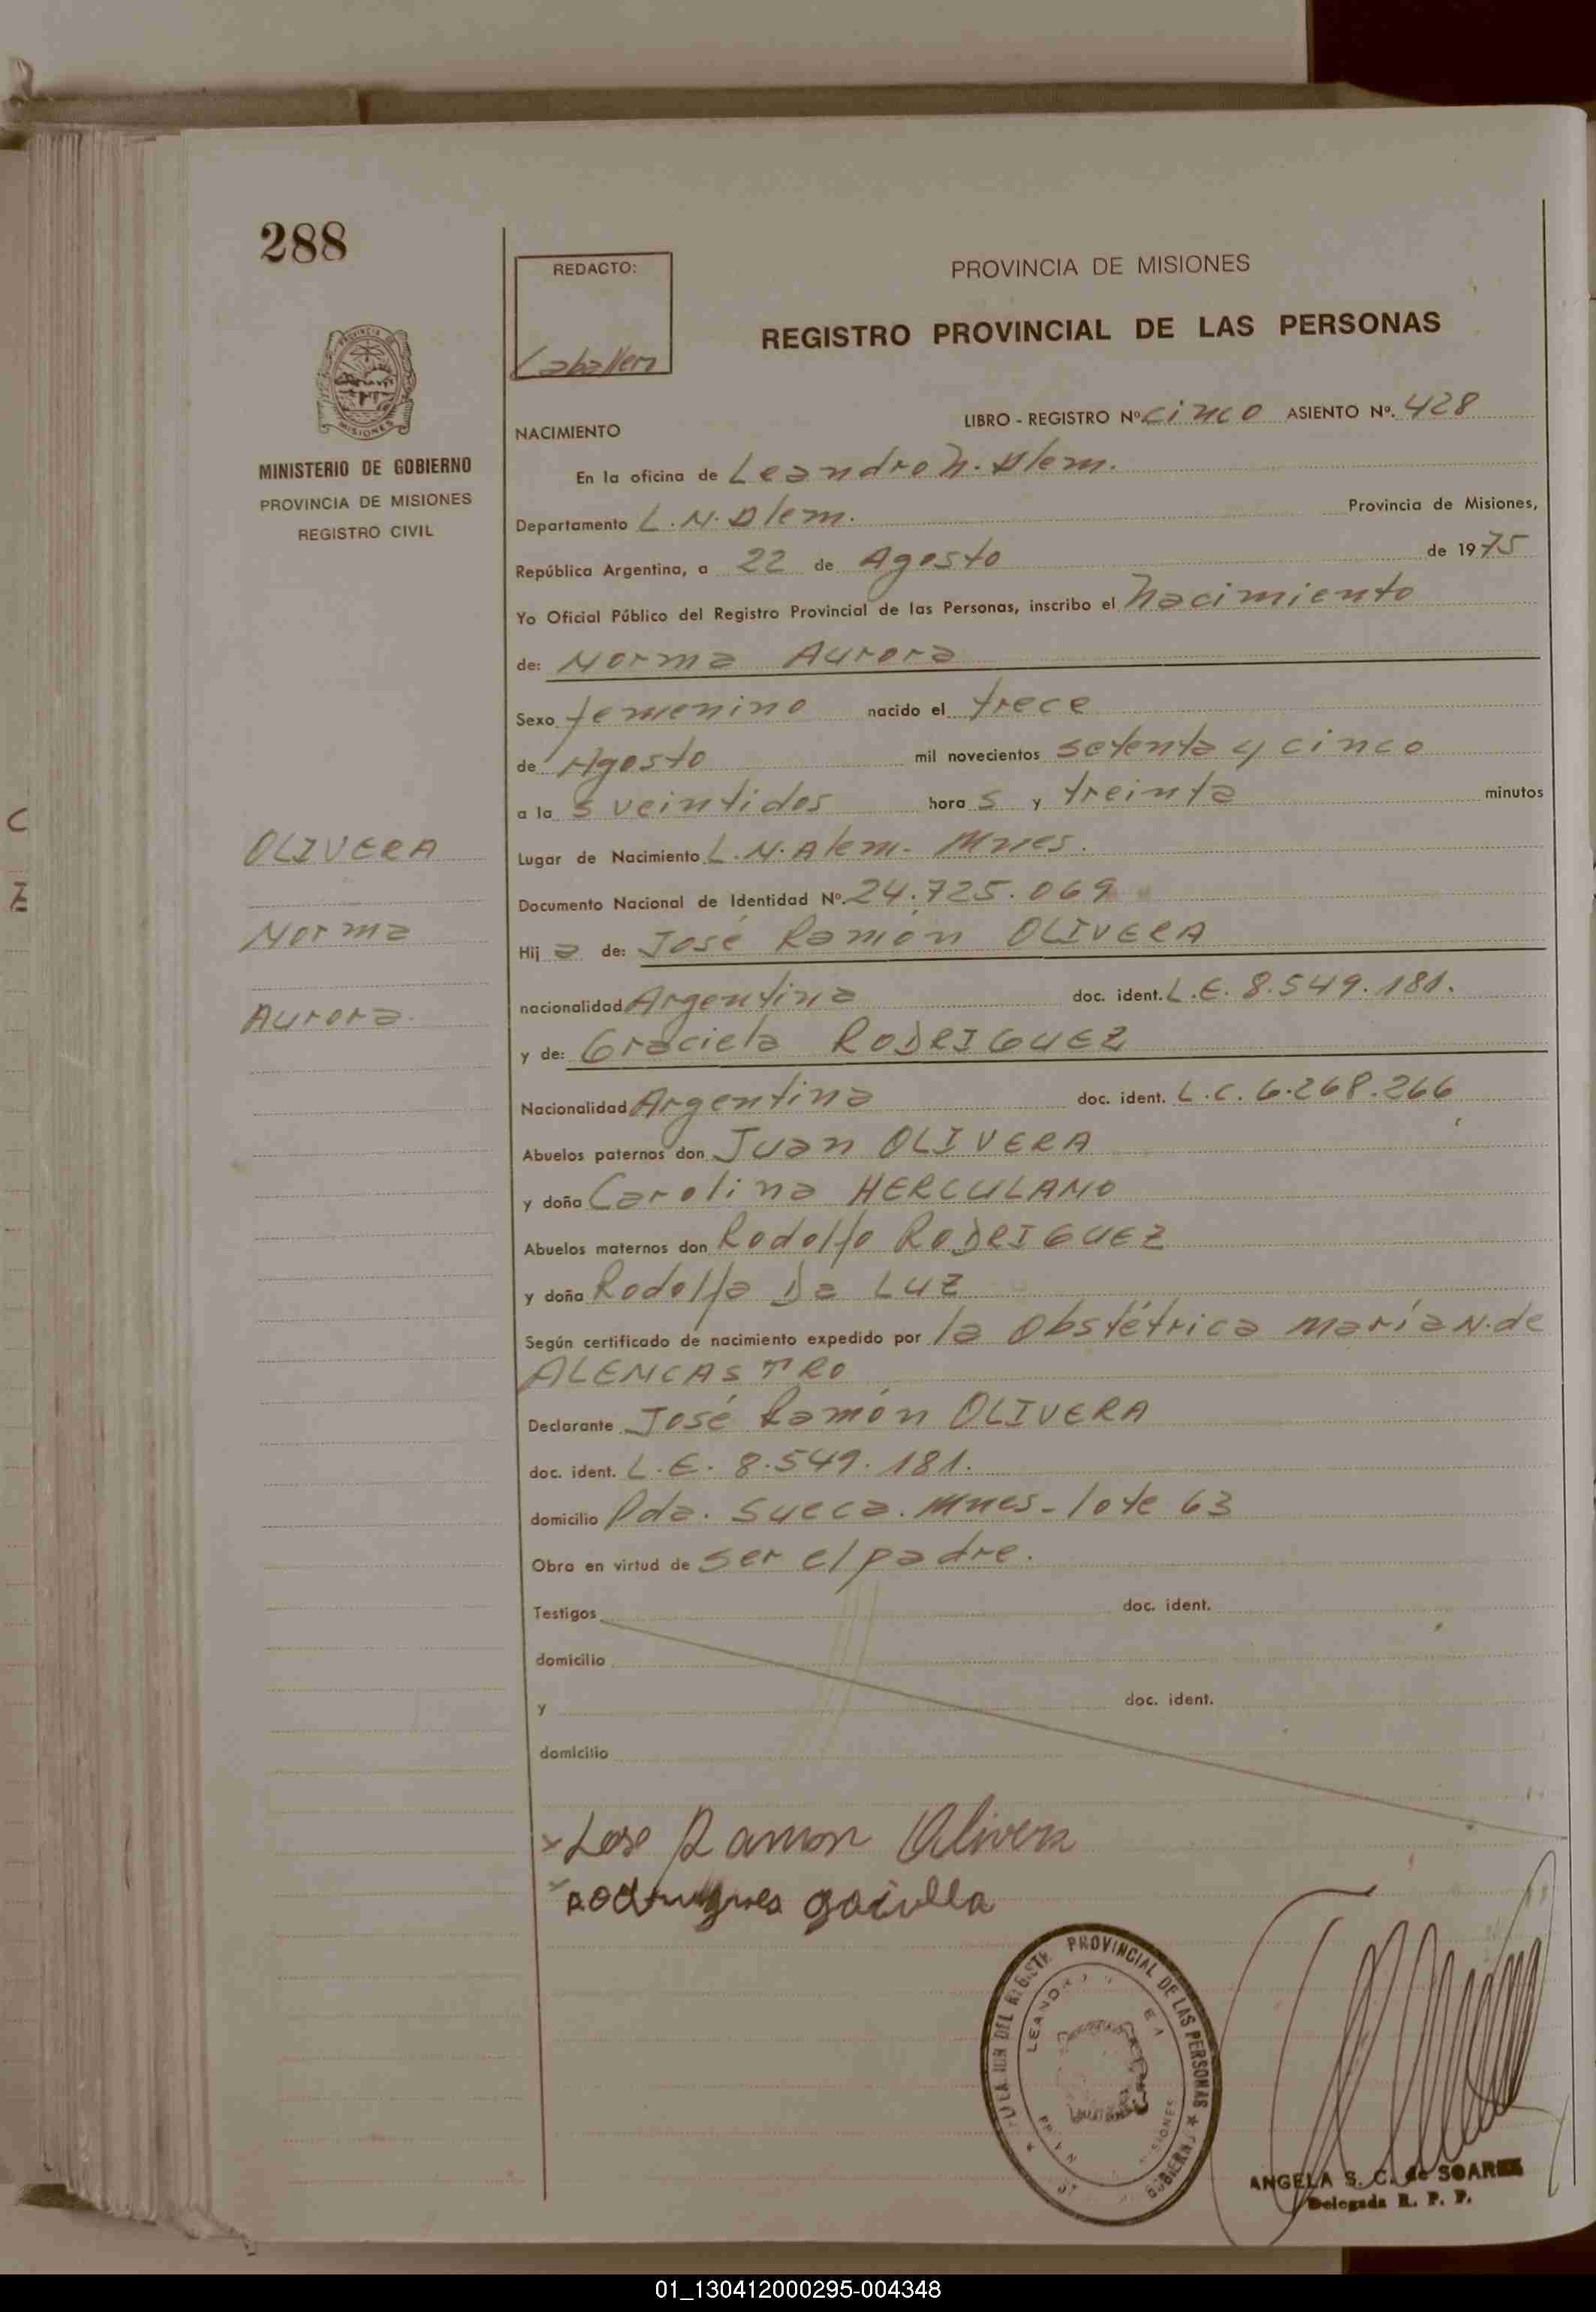 288
REDACTO:
Caballero
PROVINCIA DE MISIONES
REGISTRO PROVINCIAL DE LAS PERSONAS
PROVINCIA
MISIONES
MINISTERIO DE GOBIERNO
PROVINCIA DE MISIONES
REGISTRO CIVIL
NACIMIENTO
LIBRO - REGISTRO Nº cinco ASIENTO Nº. 428
En la oficina de Leandro N. Alem.
Departamento L. N. Alem. Provincia de Misiones,
República Argentina, a 22 de Agosto de 1975
Yo Oficial Público del Registro Provincial de las Personas, inscribo el Nacimiento
de: Norma Aurora
Sexo femenino nacido el trece
de Agosto mil novecientos setenta y cinco
a las veintidos horas y treinta minutos
OLIVERA
Norma
Aurora.
Lugar de Nacimiento L. N. Alem. Mnes.
Documento Nacional de Identidad Nº. 24.725.069
Hija de: José Ramón OLIVERA
nacionalidad Argentina doc. ident. L.E. 8.549.181.
y de: Graciela RODRIGUEZ
Nacionalidad Argentina doc. ident. L.C. 6.268.266
Abuelos paternos don Juan OLIVERA
y doña Carolina HERCULANO
Abuelos maternos don Rodolfo RODRIGUEZ
y doña Rodolfa Da LUZ
Según certificado de nacimiento expedido por la Obstétrica María N. de
ALENCASTRO
Declarante José Ramón OLIVERA
doc. ident. L.E. 8.549.181.
domicilio Pda. Sueca. Mnes - lote 63
Obra en virtud de ser el padre.
Testigos doc. ident.
domicilio
y doc. ident.
domicilio
x Jose Ramon Olivera
PROVINCIAL DE LAS PERSONAS
ANGELA S. C. de SOAREZ
Delegada R. P. P.
01_130412000295-004348